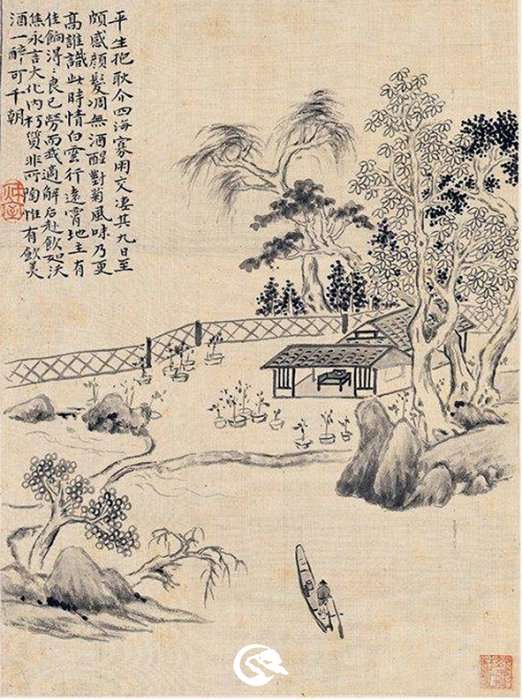 平生抱耿介四海寡朋交凄其九日至
頗感顏髮凋無酒醒對菊風味乃更
高誰識此時情白雲行遠霄地主有
佳餉得之良已勞而我適解后赴飲如沃
焦永言大化内朽質非可陶惟有飲美
酒一醉可千朝